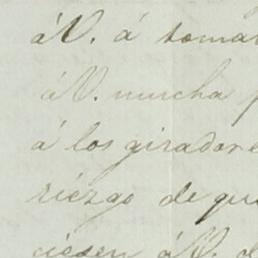 á V. á tomar
á V. mucha
á los giradore
riezgo de qu
á V. d